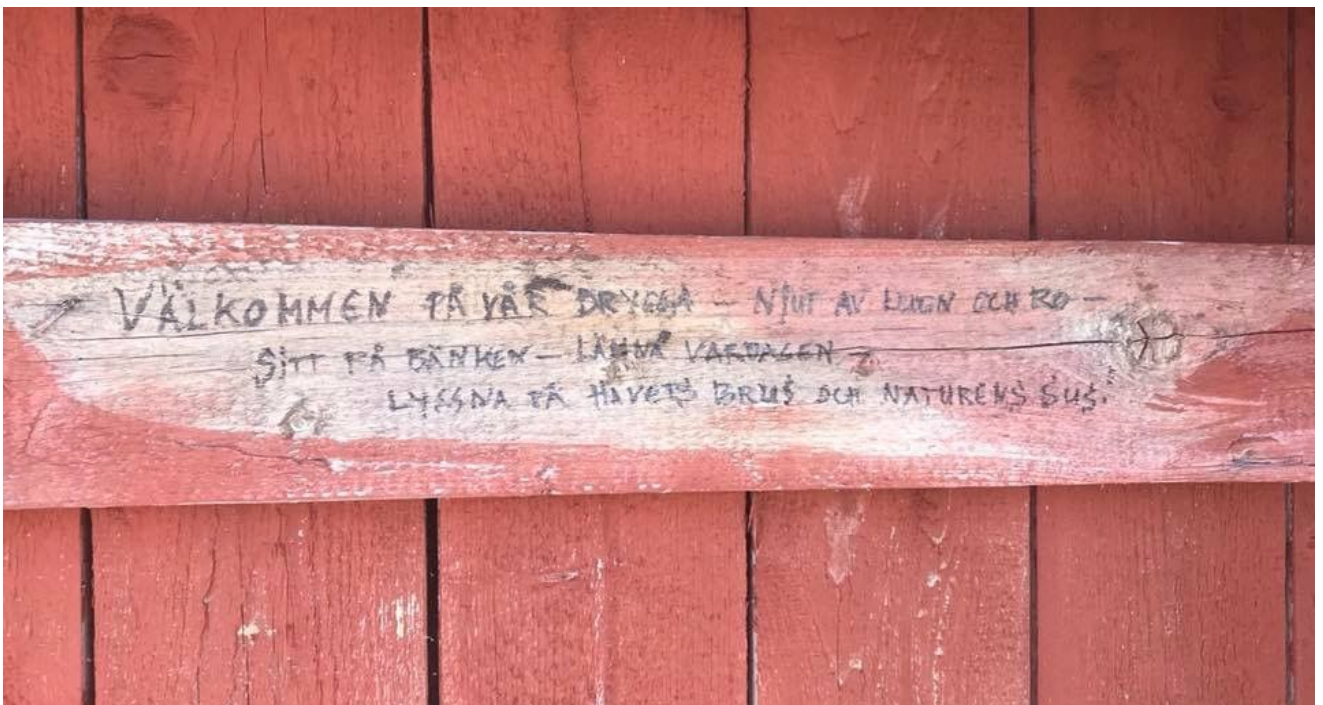 VÄLKOMMEN PÅ VÅR BRYGGA – NJUT AV LUGN OCH RO –
SITT PÅ BÄNKEN – LÄMNA VARDAGEN –
LYSSNA PÅ HAVETS BRUS OCH NATURENS SUS.